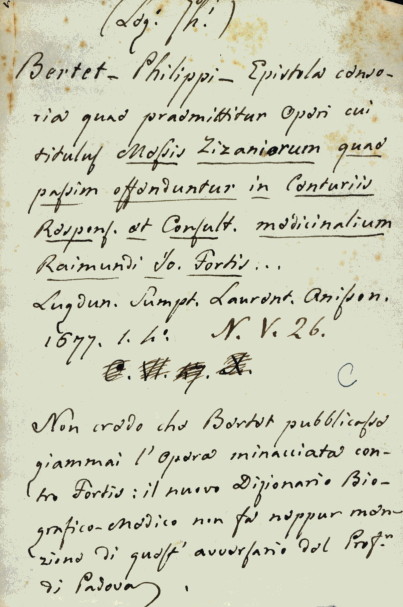 (Log: Th:)
Bertet - Philippi - Epistola censo-
ria quae praemittitur Operi cui
titulus Messis Zizaniorum quae
passim offenduntur in Centuriis
Respons. et Consult. medicinalium
Raimundi Jo. Fortis...
Lugdun. Sumpt. Laurent. Anisson.
1677. 1. h°. N. V. 26.
C
Non credo che Bertet pubblicasse
giammai l'Opera minacciata con-
tro Fortis: il nuovo Dizionario Bio-
grafico-Medico non fa neppur men-
zione di quest' avversario del Prof.r
di Padova.